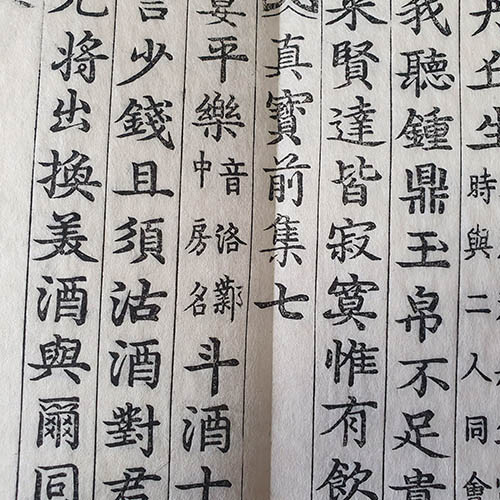 丹丘生時與二人同會
我聽鍾鼎玉帛不足貴
來賢達皆寂寞惟有飲
真寶前集七
宴平樂音洛中房名斗酒十
言少錢且須沽酒對君
兒將出換美酒與爾同